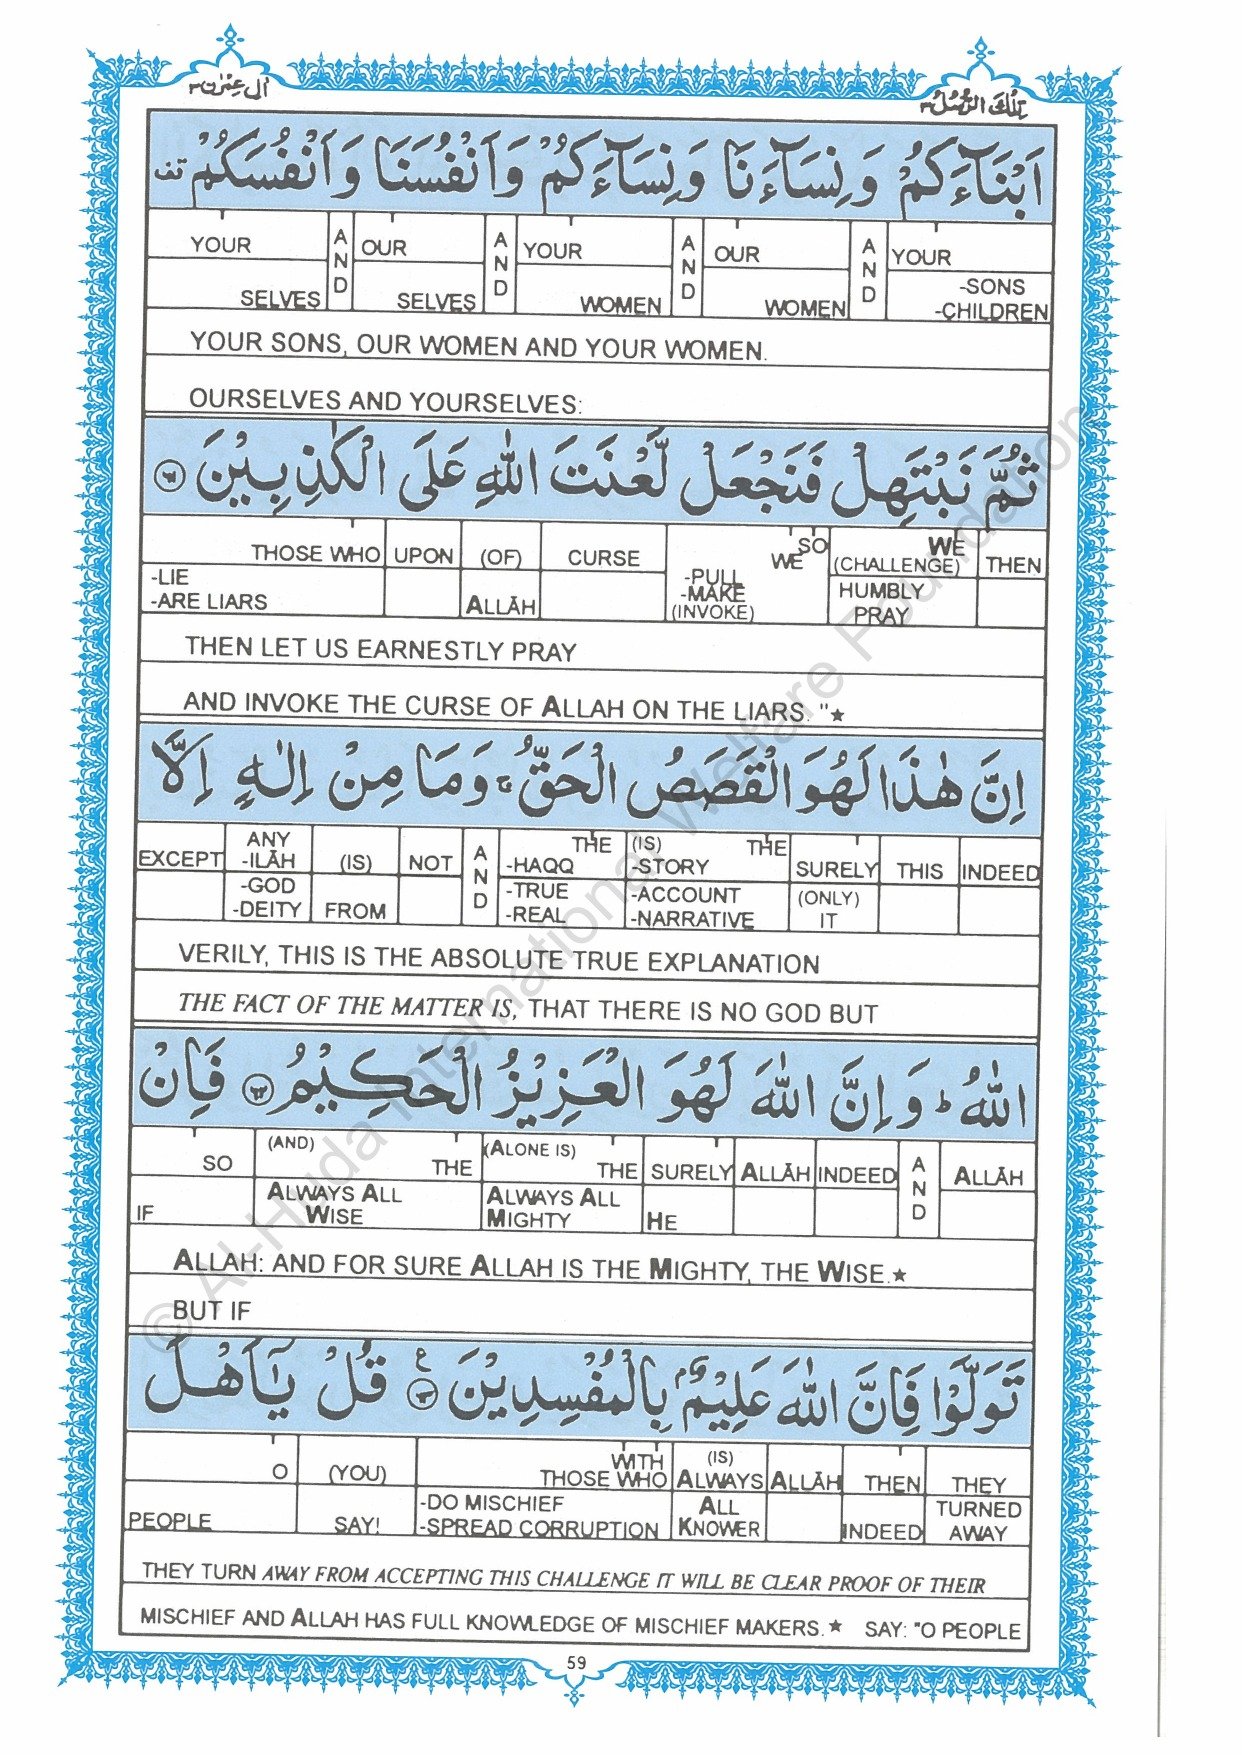 اٰل عِمْرٰن ۳
تِلْكَ الرُّسُلُ ۳
اَبْنَآءَكُمْ وَنِسَآءَنَا وَنِسَآءَكُمْ وَاَنْفُسَنَا وَاَنْفُسَكُمْ قف
YOUR SELVES AND OUR SELVES AND YOUR WOMEN AND OUR WOMEN AND YOUR -SONS -CHILDREN
YOUR SONS, OUR WOMEN AND YOUR WOMEN.
OURSELVES AND YOURSELVES:
ثُمَّ نَبْتَهِلْ فَنَجْعَلْ لَّعْنَتَ اللّٰهِ عَلَى الْكٰذِبِيْنَ ۶۱
THOSE WHO -LIE -ARE LIARS UPON (OF) ALLĀH CURSE SO WE -PULL -MAKE (INVOKE) WE (CHALLENGE) HUMBLY PRAY THEN
THEN LET US EARNESTLY PRAY
AND INVOKE THE CURSE OF ALLAH ON THE LIARS. "★
اِنَّ هٰذَا لَهُوَ الْقَصَصُ الْحَقُّ ۚ وَمَا مِنْ اِلٰهٍ اِلَّا
EXCEPT ANY -ILĀH -GOD -DEITY (IS) FROM NOT AND THE -HAQQ -TRUE -REAL (IS) THE -STORY -ACCOUNT -NARRATIVE SURELY (ONLY) IT THIS INDEED
VERILY, THIS IS THE ABSOLUTE TRUE EXPLANATION
THE FACT OF THE MATTER IS, THAT THERE IS NO GOD BUT
اللّٰهُ ؕ وَاِنَّ اللّٰهَ لَهُوَ الْعَزِيْزُ الْحَكِيْمُ ۶۲ فَاِنْ
SO IF (AND) THE ALWAYS ALL WISE (ALONE IS) THE ALWAYS ALL MIGHTY SURELY HE ALLĀH INDEED AND ALLĀH
ALLAH: AND FOR SURE ALLAH IS THE MIGHTY, THE WISE.★
BUT IF
تَوَلَّوْا فَاِنَّ اللّٰهَ عَلِيْمٌۢ بِالْمُفْسِدِيْنَ ۶۳ ع قُلْ يٰٓاَهْلَ
O PEOPLE (YOU) SAY! WITH THOSE WHO -DO MISCHIEF -SPREAD CORRUPTION (IS) ALWAYS ALL KNOWER ALLĀH THEN INDEED THEY TURNED AWAY
THEY TURN AWAY FROM ACCEPTING THIS CHALLENGE IT WILL BE CLEAR PROOF OF THEIR
MISCHIEF AND ALLAH HAS FULL KNOWLEDGE OF MISCHIEF MAKERS.★ SAY: "O PEOPLE
59
© Al-Huda International Welfare Foundation